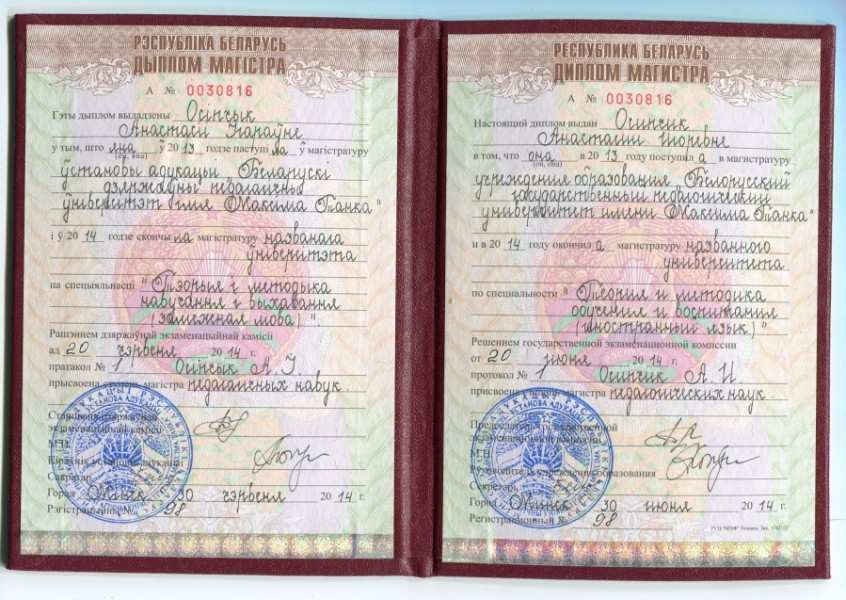 РЭСПУБЛІКА БЕЛАРУСЬ
ДЫПЛОМ МАГІСТРА
А № 0030816
Гэты дыплом выдадзены Осіпчык
Анастасіі Ігараўне
у тым, што яна ў 2013 годзе паступіла ў магістратуру
(ён, яна)
ўстановы адукацыі "Беларускі
дзяржаўны педагагічны
ўніверсітэт імя Максіма Танка"
і ў 2014 годзе скончыла магістратуру названага
ўніверсітэта
па спецыяльнасці "Тэорыя і методыка
навучання і выхавання
(замежная мова)".
Рашэннем дзяржаўнай экзаменацыйнай камісіі
ад 20 чэрвеня 2014 г.
пратакол № 1 Осіпчык А.І.
прысвоена ступень магістра педагагічных навук
Старшыня дзяржаўнай
экзаменацыйнай камісіі
М.П.
Кіраўнік установы адукацыі
Сакратар
Горад Мінск 30 чэрвеня 2014 г.
Рэгістрацыйны № 98
РЕСПУБЛИКА БЕЛАРУСЬ
ДИПЛОМ МАГИСТРА
А № 0030816
Настоящий диплом выдан Осипчик
Анастасии Игоревне
в том, что она в 2013 году поступила в магистратуру
(он, она)
учреждения образования "Белорусский
государственный педагогический
университет имени Максима Танка"
и в 2014 году окончила магистратуру названного
университета
по специальности "Теория и методика
обучения и воспитания
(иностранный язык)"
Решением государственной экзаменационной комиссии
от 20 июня 2014 г.
протокол № 1 Осипчик А.И.
присвоена степень магистра педагогических наук
Председатель государственной
экзаменационной комиссии
М.П.
Руководитель учреждения образования
Секретарь
Город Минск 30 июня 2014 г.
Регистрационный № 98